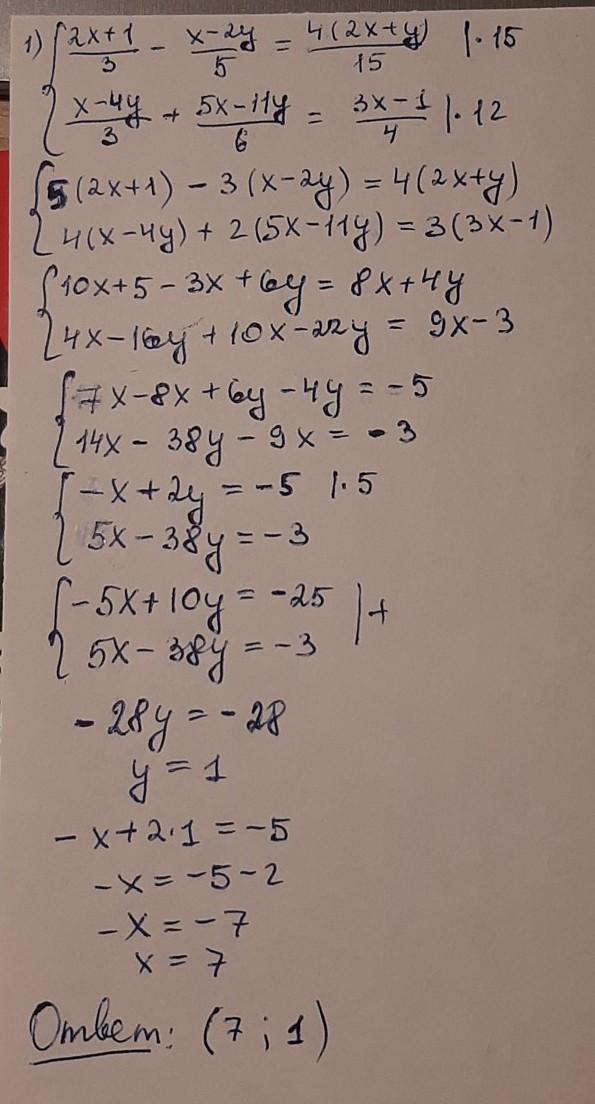 1) { (2x+1)/3 - (x-2y)/5 = 4(2x+y)/15 |·15
(x-4y)/3 + (5x-11y)/6 = (3x-1)/4 |·12
{ 5(2x+1) - 3(x-2y) = 4(2x+y)
4(x-4y) + 2(5x-11y) = 3(3x-1)
{ 10x+5-3x+6y = 8x+4y
4x-16y+10x-22y = 9x-3
{ 7x-8x+6y-4y = -5
14x-38y-9x = -3
{ -x+2y = -5 |·5
5x-38y = -3
{ -5x+10y = -25 |+
5x-38y = -3
-28y = -28
y = 1
-x+2·1 = -5
-x = -5-2
-x = -7
x = 7
Ответ: (7; 1)